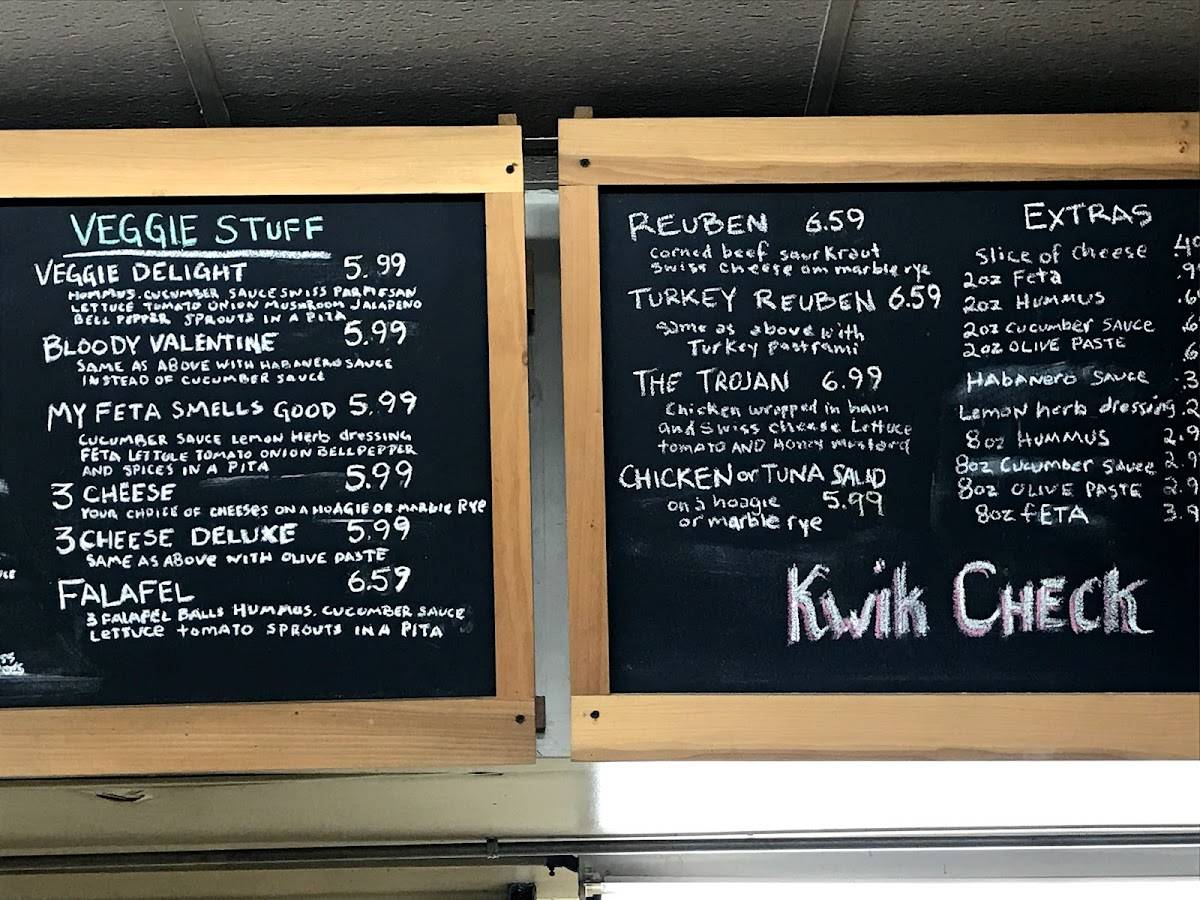 VEGGIE STUFF
VEGGIE DELIGHT 5.99
HUMMUS. CUCUMBER SAUCE SWISS PARMESAN
LETTUCE TOMATO ONION MUSHROOM JALAPENO
BELL PEPPER SPROUTS IN A PITA
BLOODY VALENTINE 5.99
SAME AS ABOVE WITH HABANERO SAUCE
INSTEAD OF CUCUMBER SAUCE
MY FETA SMELLS GOOD 5.99
CUCUMBER SAUCE LEMON HERB DRESSING
FETA LETTUCE TOMATO ONION BELL PEPPER
AND SPICES IN A PITA
3 CHEESE 5.99
YOUR CHOICE OF CHEESES ON A HOAGIE OR MARBLE RYE
3 CHEESE DELUXE 5.99
SAME AS ABOVE WITH OLIVE PASTE
FALAFEL 6.59
3 FALAFEL BALLS HUMMUS. CUCUMBER SAUCE
LETTUCE TOMATO SPROUTS IN A PITA
REUBEN 6.59
Corned beef saurkraut
Swiss cheese om marble rye
TURKEY REUBEN 6.59
Same as above with
Turkey pastrami
THE TROJAN 6.99
Chicken wrapped in ham
and Swiss cheese Lettuce
tomato AND Honey mustard
CHICKEN or TUNA SALAD
on a hoagie 5.99
or marble rye
EXTRAS
Slice of cheese
2oz Feta
2oz HUMMUS
2oz CUCUMBER SAUCE
2oz OLIVE PASTE
HABANERO SAUCE
Lemon herb dressing
8oz HUMMUS
8oz CUCUMBER SAUCE
8oz OLIVE PASTE
8oz FETA
Kwik CHECK